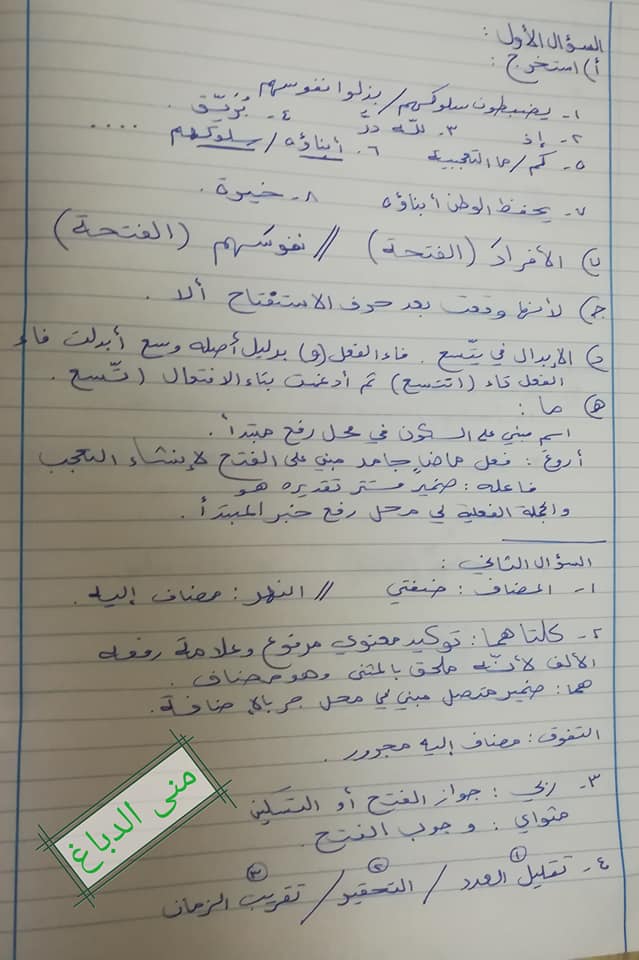 السؤال الأول :
أ) استخرج :
١- يضبطون سلوكهم / بذلوا نفوسهم
٢- إذ ٣- لله درّ ٤- بُرَيّق .
٥- كم / ما التعجبية ٦- أبناؤه / سلوكهم ....
٧- يحفظ الوطن أبناؤه ٨- خيرة .
ب) الأفرادَ (الفتحة) // نفوسَهم (الفتحة)
ج) لأنها وقعت بعد حرف الاستفتاح ألا .
د) الإبدال في يتّسع . فاء الفعل (و) بدليل أصله وسع أبدلت فاء
الفعل تاء (اتتسع) ثم أدغمت بتاء الافتعال (تّسع .
هـ) ما :
اسم مبني على السكون في محل رفع مبتدأ .
أروعَ : فعل ماضٍ جامد مبني على الفتح لإنشاء التعجب
فاعله : ضمير مستتر تقديره هو
والجملة الفعلية في محل رفع خبر المبتدأ .
السؤال الثاني :
١- المضاف : ضفتي // النهر : مضاف إليه .
٢- كلتاهما : توكيد معنوي مرفوع وعلامة رفعه
الألف لأنّه ملحق بالمثنى وهو مضاف .
هما : ضمير متصل مبني في محل جر بالإضافة .
التفوق : مضاف إليه مجرور .
٣- ربي : جواز الفتح أو التسكين
مثواي : وجوب الفتح .
٤- تقليل العدد / التحقير / تقريب الزمان
١ ٢ ٣
منى الدباغ